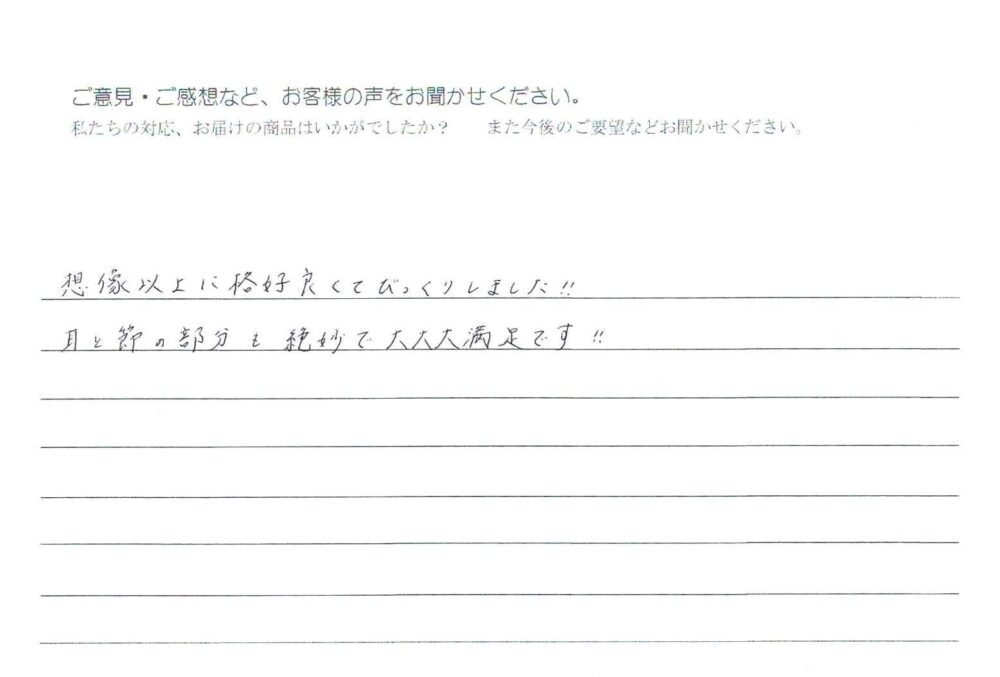 ご意見・ご感想など、お客様の声をお聞かせください。
私たちの対応、お届けの商品はいかがでしたか？　　また今後のご要望などお聞かせください。
想像以上に格好良くてびっくりしました!!
耳と節の部分も絶妙で大大大満足です!!